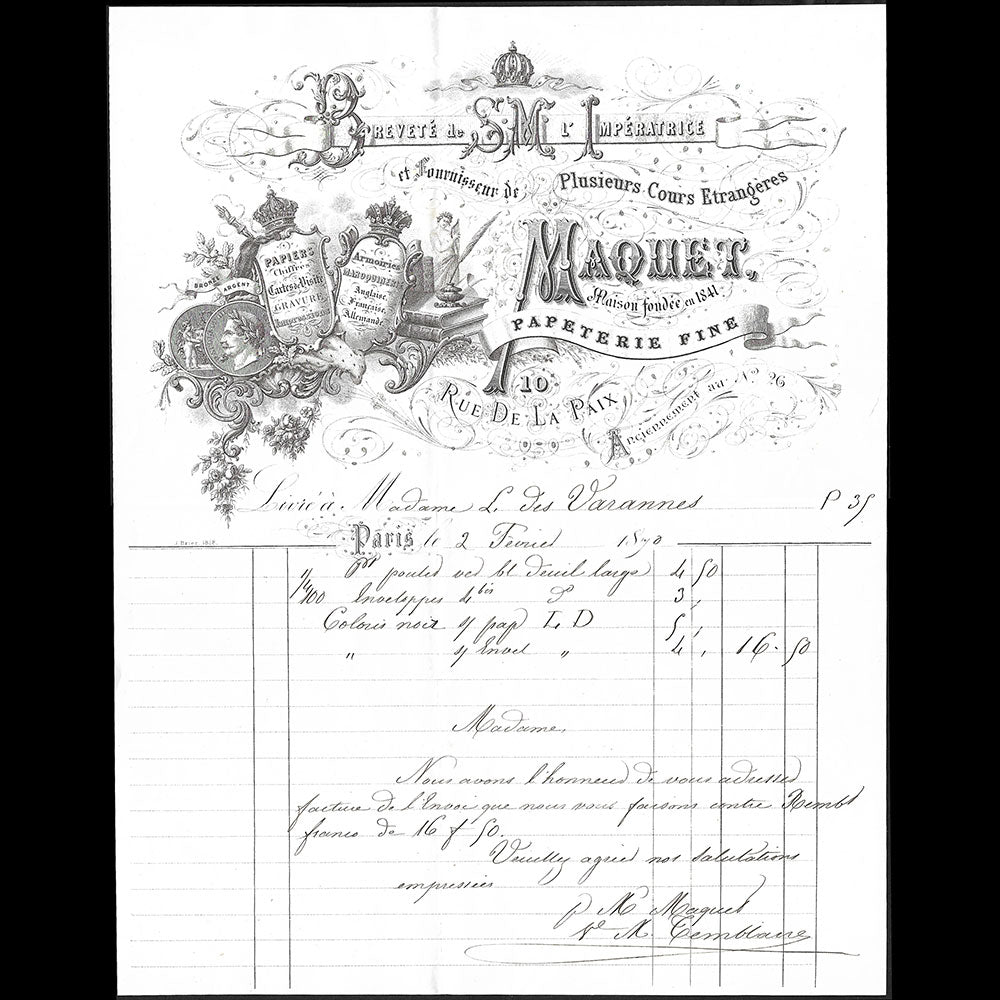 Breveté de S. M. L' Impératrice
et Fournisseur de Plusieurs Cours Etrangères
MAQUET,
Maison fondée en 1841.
PAPETERIE FINE
10
RUE DE LA PAIX
Anciennement au No 26
BRONZE ARGENT
PAPIERS
Chiffres
Cartes de Visite
GRAVURE
Impressions
Armoiries
MAROQUINERIE
Anglaise
Française
Allemande
Livré à Madame L. des Varannes P 35
Paris le 2 Février 1870
poulet bl deuil large 4 50
100 Enveloppes 4 bis 3 ,
Coloris noir s/ pap L D 5 ,
" s/ Envel " 4 , 16 . 50
Madame,
Nous avons l'honneur de vous adresser
facture de l'Envoi que nous vous faisons contre Rembt
franco de 16 f 50.
Veuillez agréer nos salutations
empressées
p M Maquet